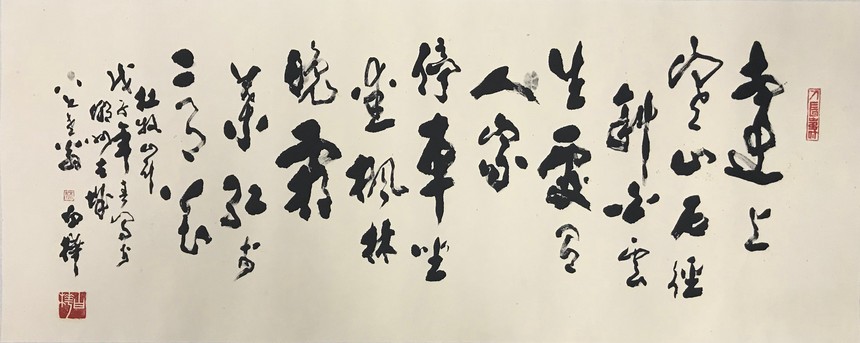 遠上
寒山石徑
斜白雲
生處有
人家
停車坐
愛楓林
晚霜
葉紅於
二月花
杜牧山行
年春寫於
古城
翁